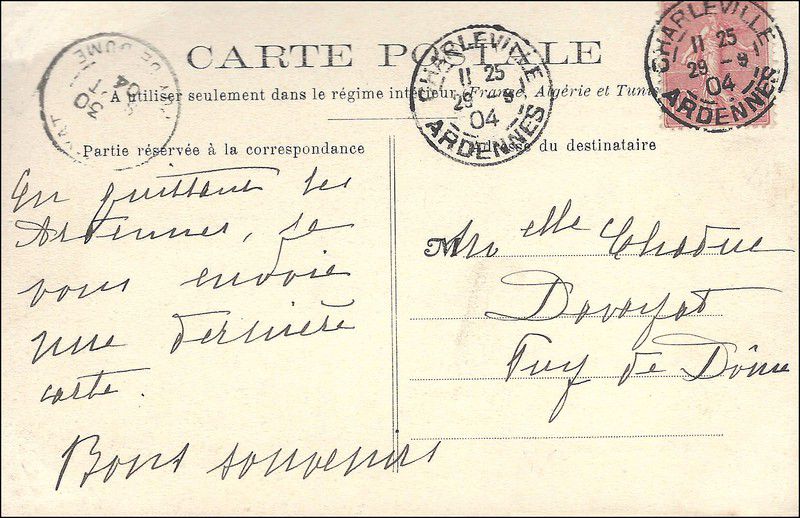 CARTE POSTALE
A utiliser seulement dans le régime intérieur, France, Algérie et Tunis
CHARLEVILLE
11 25
29 - 9
04
ARDENNES
CHARLEVILLE
11 25
29 - 9
04
ARDENNES
DE DOME
30
04
Partie réservée à la correspondance
Adresse du destinataire
En quittant les
Ardennes, je
vous envoie
une dernière
carte.
Bons souvenirs
M
Melle Chaduc
Davayat
Puy de Dôme